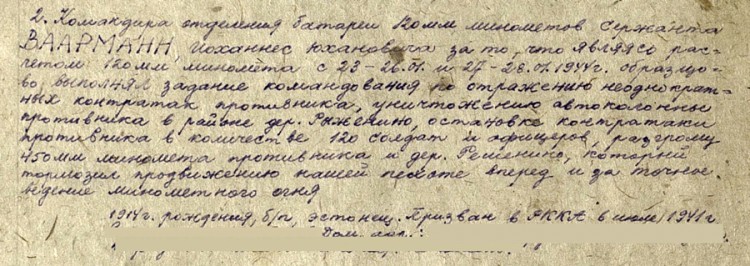 2. Командира отделения батареи 120мм минометов Сержанта
ВААРМАНН, Иоханнес Юхановича за то, что являясь рас-
четом 120мм миномёта с 23-26.01 и 27-28.01.1944г. образцо-
во выполнял задание командования по отражению неоднократ-
ных контратак противника, уничтожению автоколонны
противника в районе дер. Рыжекино, остановке контратаки
противника в количестве 120 солдат и офицеров, разгрому
450мм миномета противника и дер. Решенино, который
тормозил продвижению нашей пехоте вперед и за точное
ведение минометного огня
1914г. рождения, б/п, эстонец. Призван в РККА в июле 1941г
Дом. адр.: